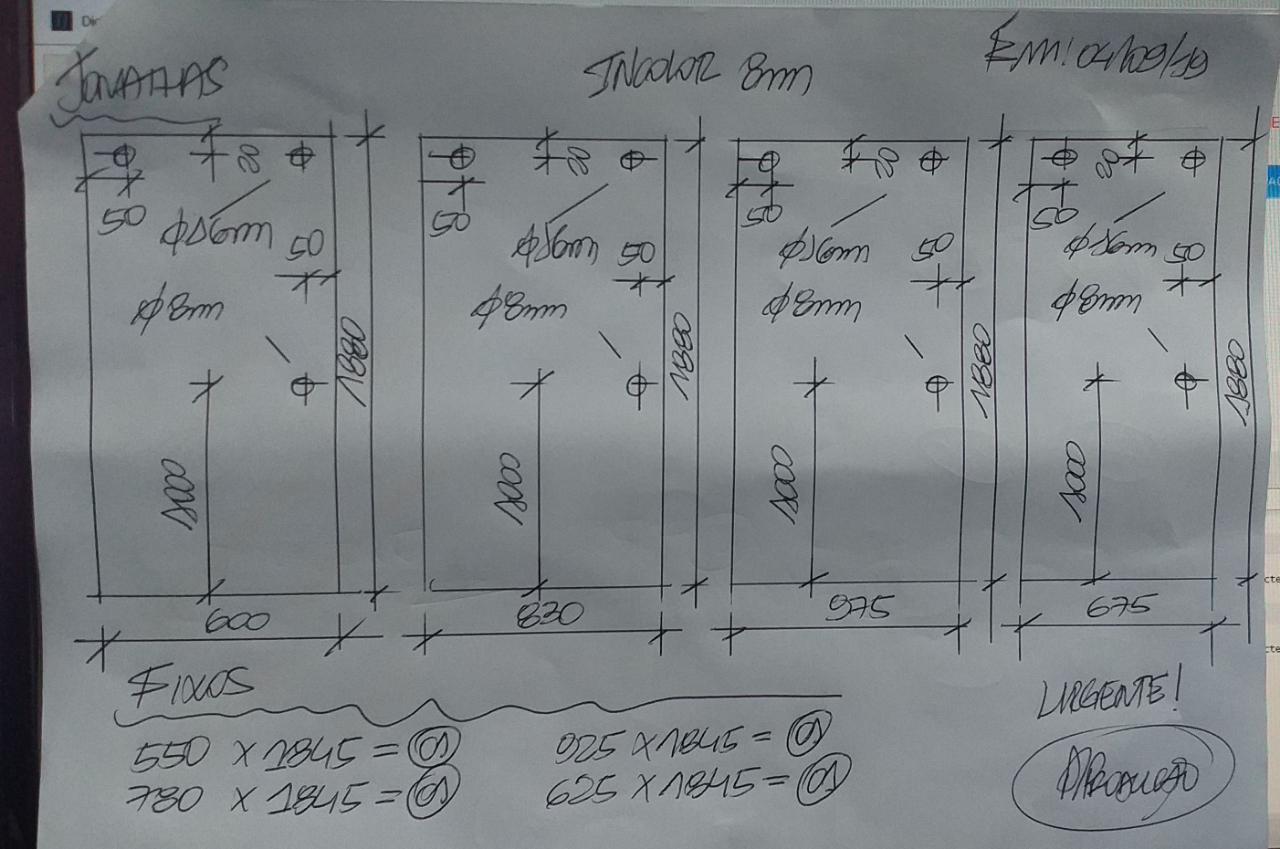 JONATHAS
INCOLOR 8mm
Em: 04/09/19
50
20
Φ16mm
50
Φ8mm
1880
1000
600
50
20
Φ16mm
50
Φ8mm
1880
1000
830
50
20
Φ16mm
50
Φ8mm
1880
1000
975
50
20
Φ16mm
50
Φ8mm
1880
1000
675
FIXOS
550 X 1845 = 01
780 X 1845 = 01
925 X 1845 = 01
625 X 1845 = 01
URGENTE!